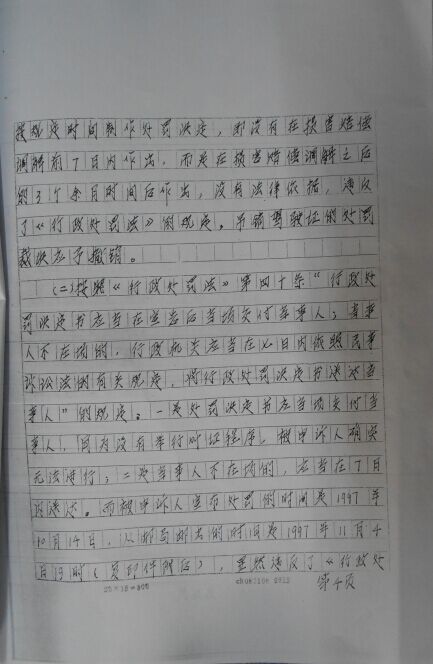 按规定时间制作处罚决定，即没有在损害赔偿
调解前7日内作出，而是在损害赔偿调解之后
的3个余月时间后作出，没有法律依据，违反
了《行政处罚法》的规定。吊销驾驶证的处罚
裁决应予撤销。
(二)按照《行政处罚法》第四十条“行政处
罚决定书应当在宣告后当场交付当事人；当事
人不在场的，行政机关应当在七日内依照民事
诉讼法的有关规定，将行政处罚决定书送达当
事人”的规定。一是处罚决定书应当场交付当
事人，因为没有举行听证程序，被申诉人确实
无法进行；二是当事人不在场的，应当在7日
内送达。而被申诉人宣布处罚的时间是1997年
10月14日，从邮局邮出的时间是1997年11月4
日19时(见邮件附后)，显然违反了《行政处
20×15=300
第4页